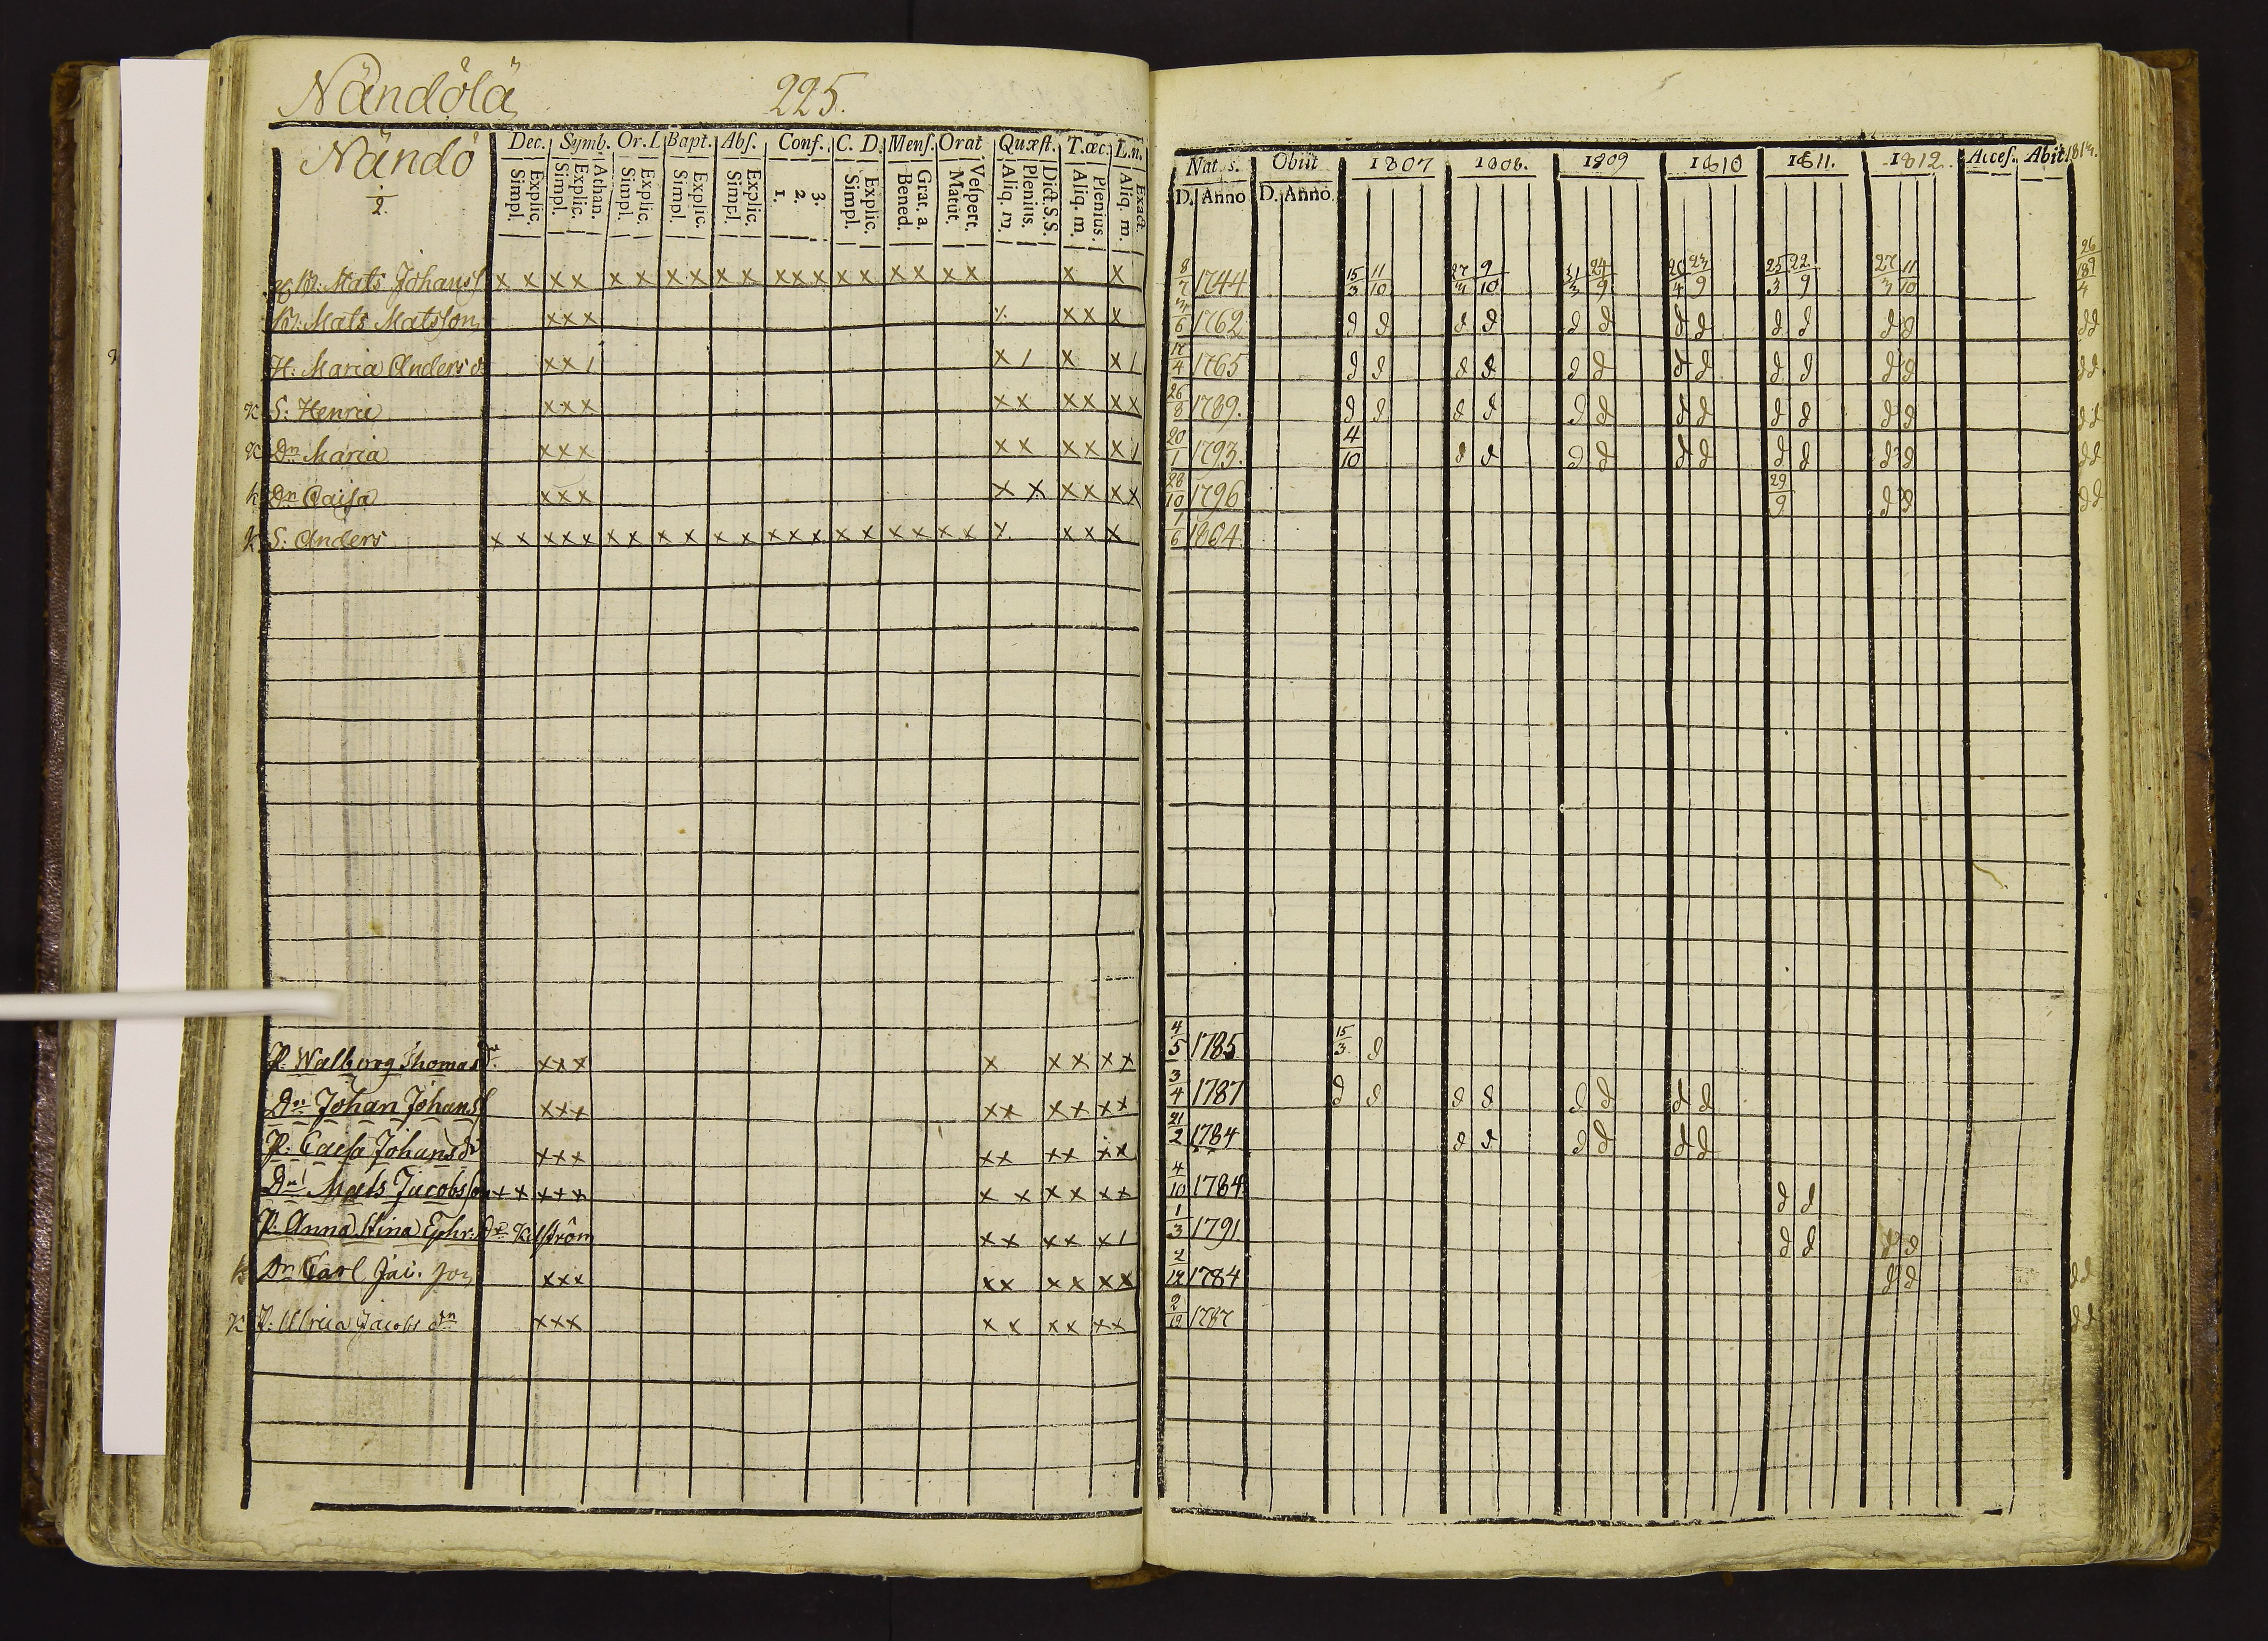 Nändölä 225.
Nändö Dec. Symb. Or. I. Bapt. Abſ. Conf. C. D. Menſ. Orat Quæſt. T. œc. L. n.
1/2. Explic. Simpl. Athan. Explic. Simpl. Explic. Simpl. Explic. Simpl. Explic. Simpl. 3. 2. 1. Explic. Simpl. Grat. a. Bened. Veſpert. Matut. Dict. S.S. Plenius. Aliq. m. Plenius. Aliq. m. Exact. Aliq. m.
Mats Johansſ x x x x x x x x x x x x x x x x x x x x x
Mats Matsſon x x x x x x x
H: Maria Anders d. x x / x / x x /
K S: Henric x x x x x x x x x
K Dn Maria x x x x x x x x /
k Dn Caisa x x x x x x x x x
K S: Anders x x x x x x x x x x x x x x x x x x x x x x x x
P. Walborg Thomasdr. x x x x x x x x
Dn Johan Johansſ x x x x x x x x x
P: Caisa Johansdr x x x x x x x x x
Dn Mats Jacobsſon x x x x x x x x x x x
P: Anna Stina Ephr: dr x x x x x /
k Dn Carl x x x x x x x x x
K P: Ulrica Jacobs dr x x x x x x x x x
Nat. s. Obiit 1807 1808. 1809 1810 1811. 1812. Acceſ. Abit 1813.
D. Anno D. Anno
8/7 1744 15/3 11/10 27/3 9/10 31/3 24/9 4 23/9 25/3 22/9 27/3 11/10 26
6 1762 d d d d d d d d d d d d d d
17/4 1765 d d d d d d d d d d d d d d
26/8 1789. d d d d d d d d d d d d d d
20/1 1793. 4/10 d d d d d d d d d d d d
28/10 1796 29/9 d d d d
1/6 1804.
4/5 1785 15/3 d
3/4 1787 d d d d d d d d
21/2 1784 d d d d d d
4/10 1784 d d
1/3 1791 d d d d
2/12 1784 d d d d
2/12 1787 d d